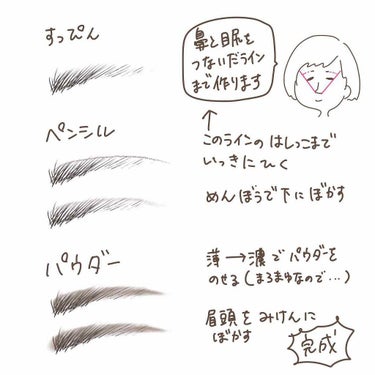 すっぴん
鼻と目尻を
つないだライン
まで作ります
ペンシル
このラインのはしっこまで
いっきにひく
めんぼうで下にぼかす
パウダー
薄→濃でパウダーを
のせる(まろまゆなので...)
眉頭をみけんに
ぼかす
完成